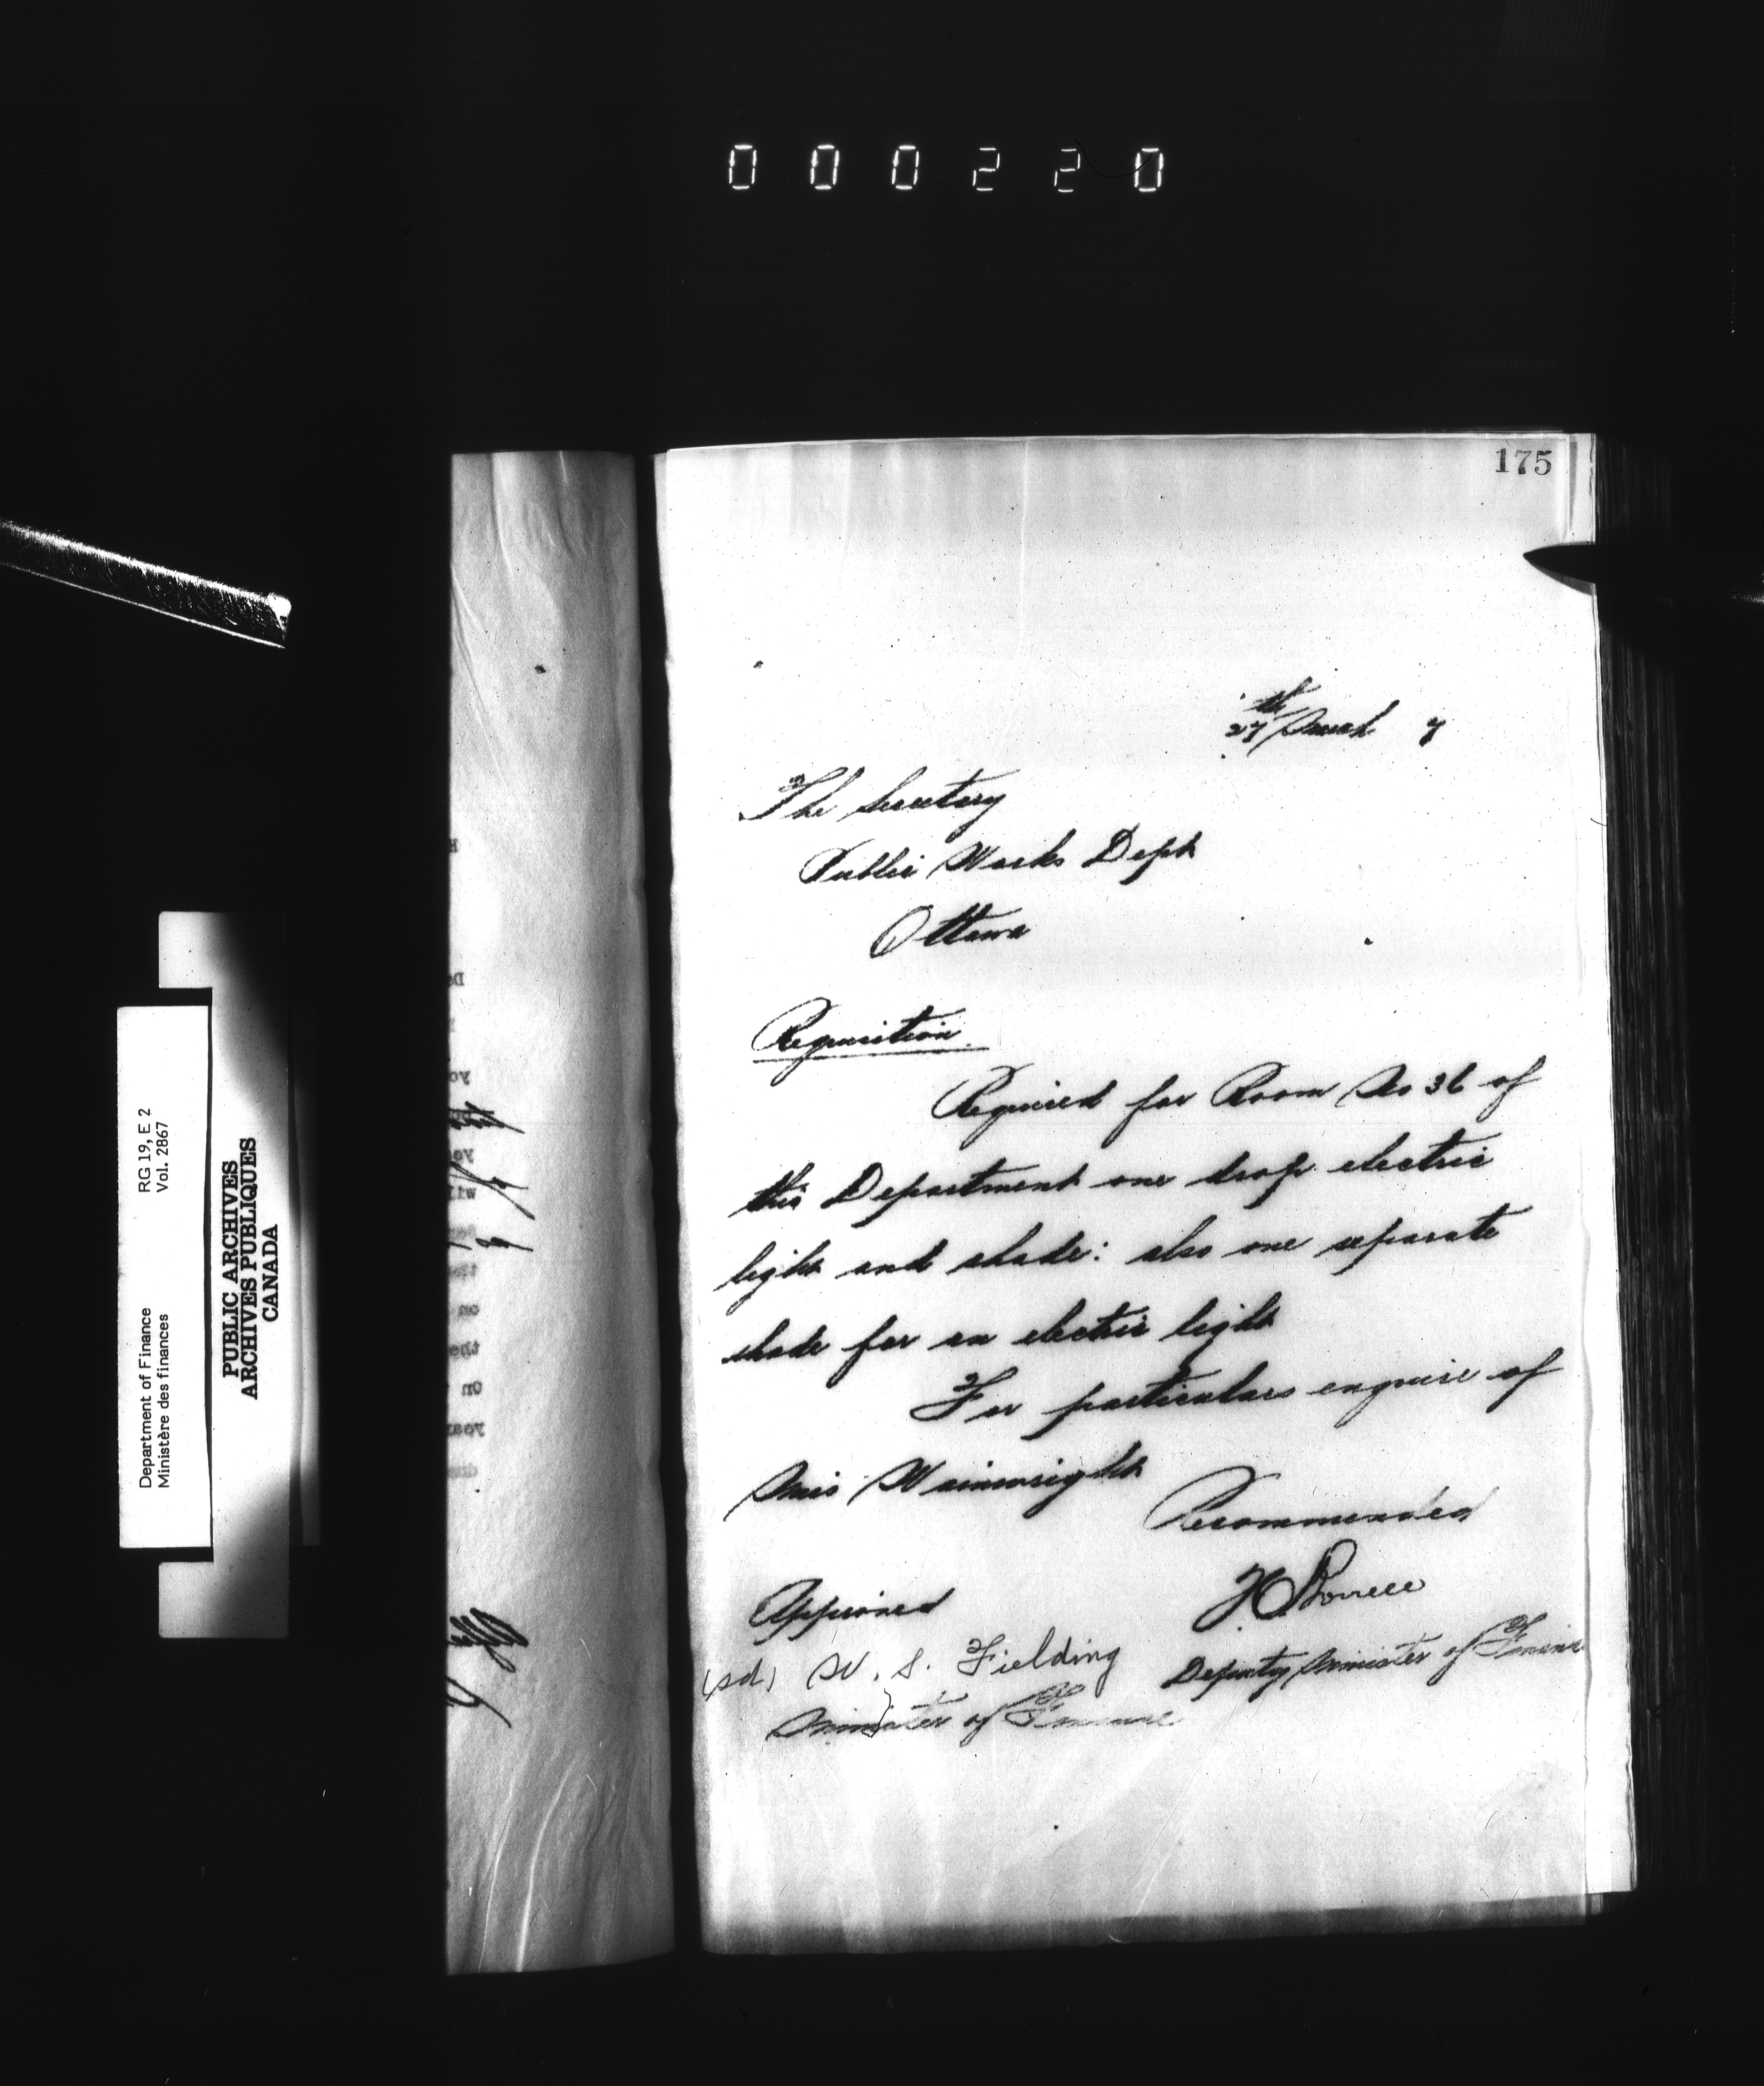 000220
175
27th March 7
The Secretary
Public Works Dept
Ottawa
Requisition.
Required for Room No 36 of
this Department one drop electric
light and shade: also one separate
shade for an electric light
For particulars enquire of
Miss Wainwright
Recommended
Approved
(sd) W. S. Fielding
Deputy Minister of Finance
Minister of Finance
Department of Finance RG 19, E 2
Ministère des finances Vol. 2867
PUBLIC ARCHIVES
ARCHIVES PUBLIQUES
CANADA